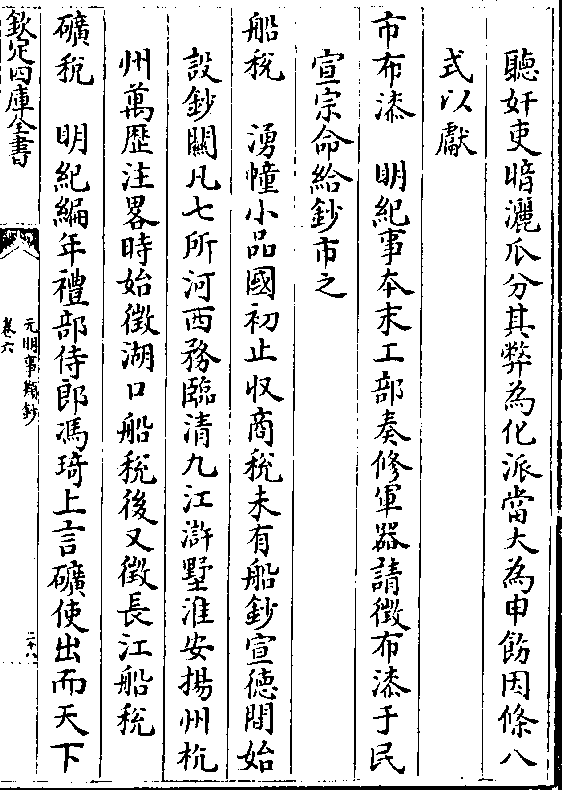 聽奸吏暗灑瓜分其弊為化派當大為申飭因條八
式以獻
市布漆　明紀事本末工部奏修軍器請徴布漆于民
宣宗命給鈔市之
船稅　湧幢小品國初止収商稅未有船鈔宣德間始
設鈔關凡七所河西務臨清九江滸墅淮安揚州杭
州萬歷注畧時始徴湖口船稅後又徴長江船稅
礦稅　明紀編年禮部侍郎馮琦上言礦使出而天下
欽定四庫全書
元明事類鈔
卷六
二十八